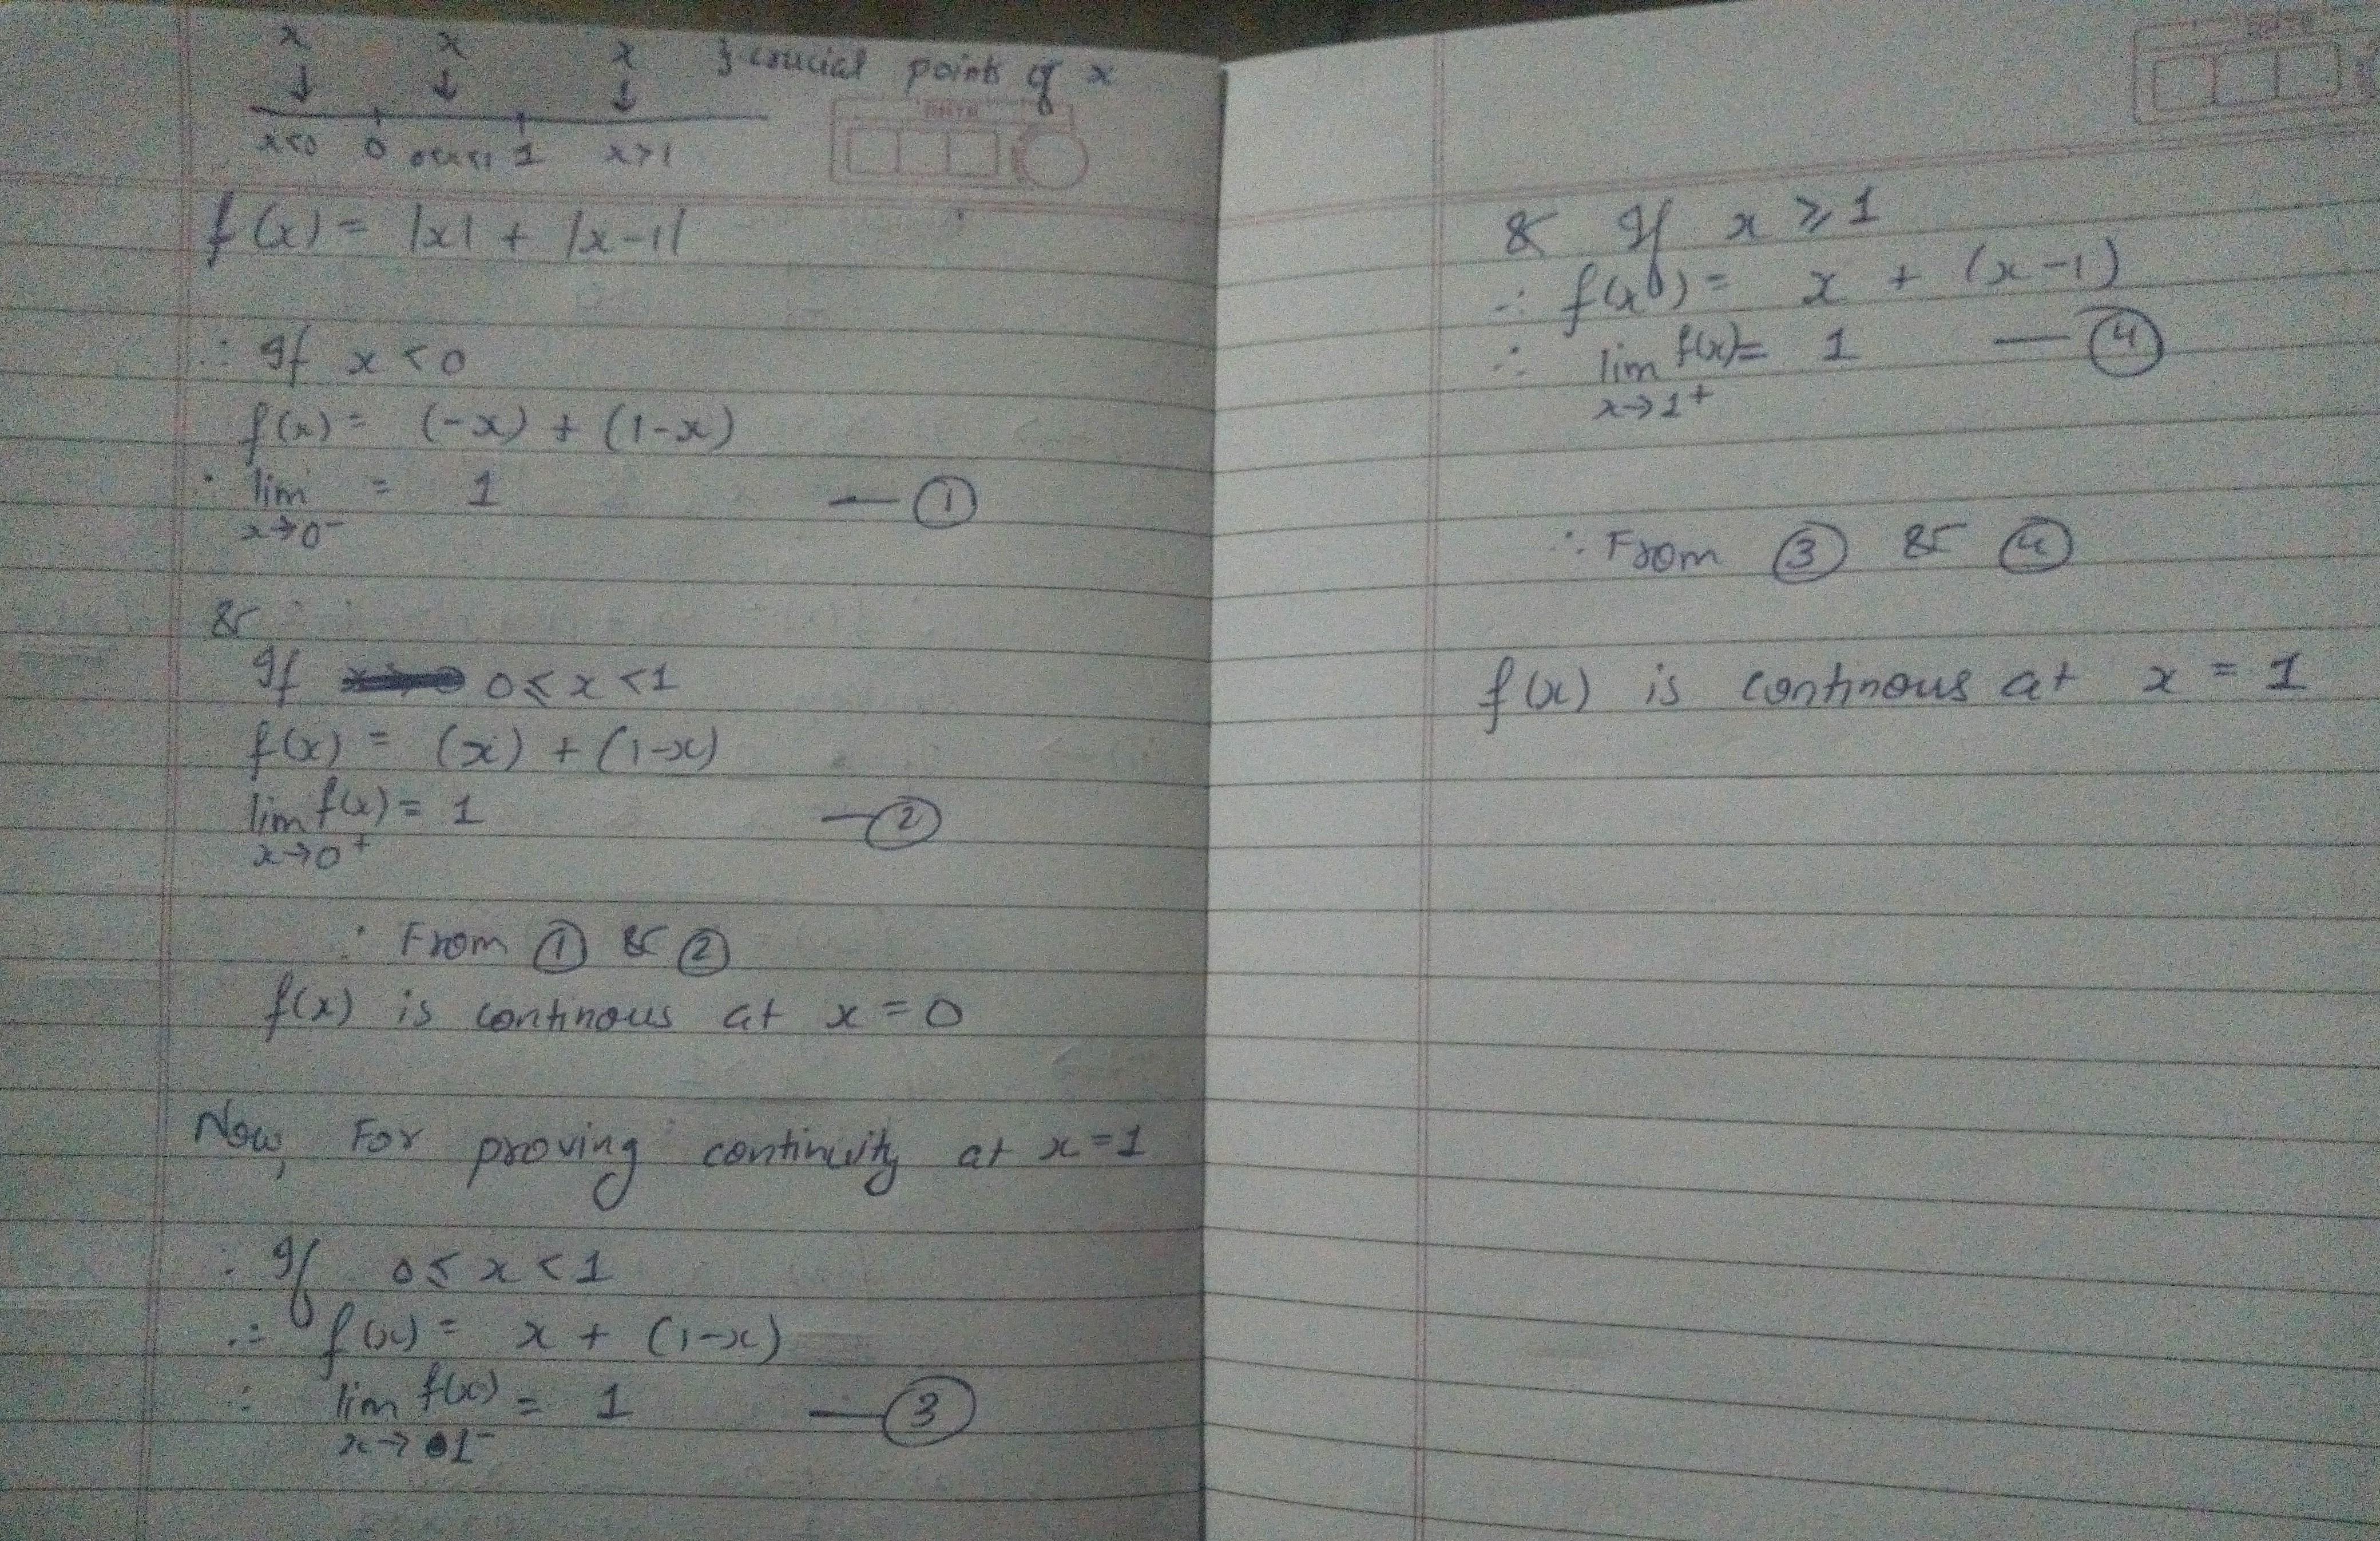 x x x } crucial points of x
↓ ↓ ↓
x<0 0 0<x<1 1 x>1
DATE
f(x) = |x| + |x-1|
∴ If x < 0
f(x) = (-x) + (1-x)
∴ lim = 1 — ①
x→0⁻
&
If 0 ≤ x < 1
f(x) = (x) + (1-x)
lim f(x) = 1 — ②
x→0⁺
∴ From ① & ②
f(x) is continous at x = 0
Now, For proving continuity at x = 1
∴ If 0 ≤ x < 1
∴ f(x) = x + (1-x)
∴ lim f(x) = 1 — ③
x→1⁻
& If x ≥ 1
∴ f(x) = x + (x-1)
∴ lim f(x) = 1 — ④
x→1⁺
∴ From ③ & ④
f(x) is continous at x = 1